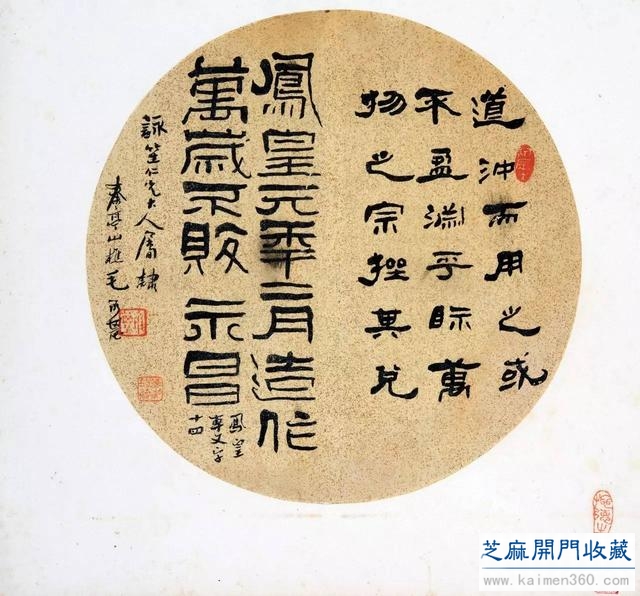 道沖而用之或
不盈淵乎萬
物之宗挫其兌
鳳皇元年二月造作
萬歲不敗永昌
鳳皇
專文字
十四
詠笙仁兄大人屬隸
亭山樵毛承
芝麻開門收藏
www.kaimen360.com